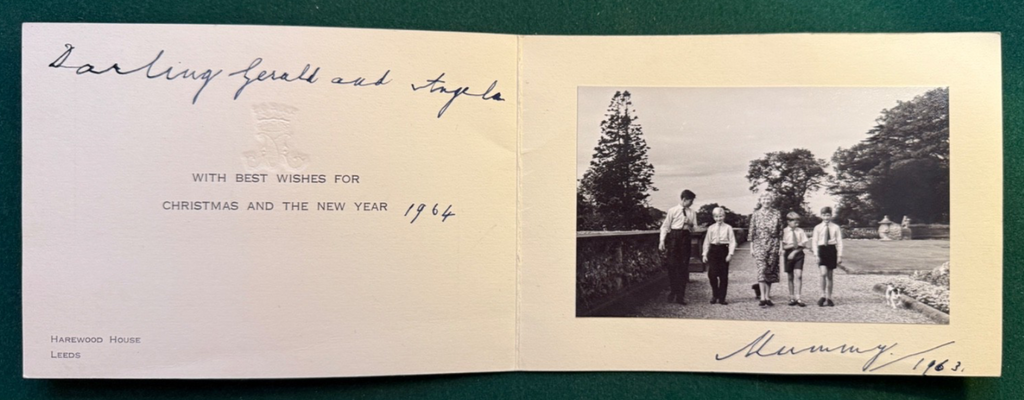 Darling Gerald and Angela
WITH BEST WISHES FOR
CHRISTMAS AND THE NEW YEAR 1964
HAREWOOD HOUSE
LEEDS
Mummy. 1963.